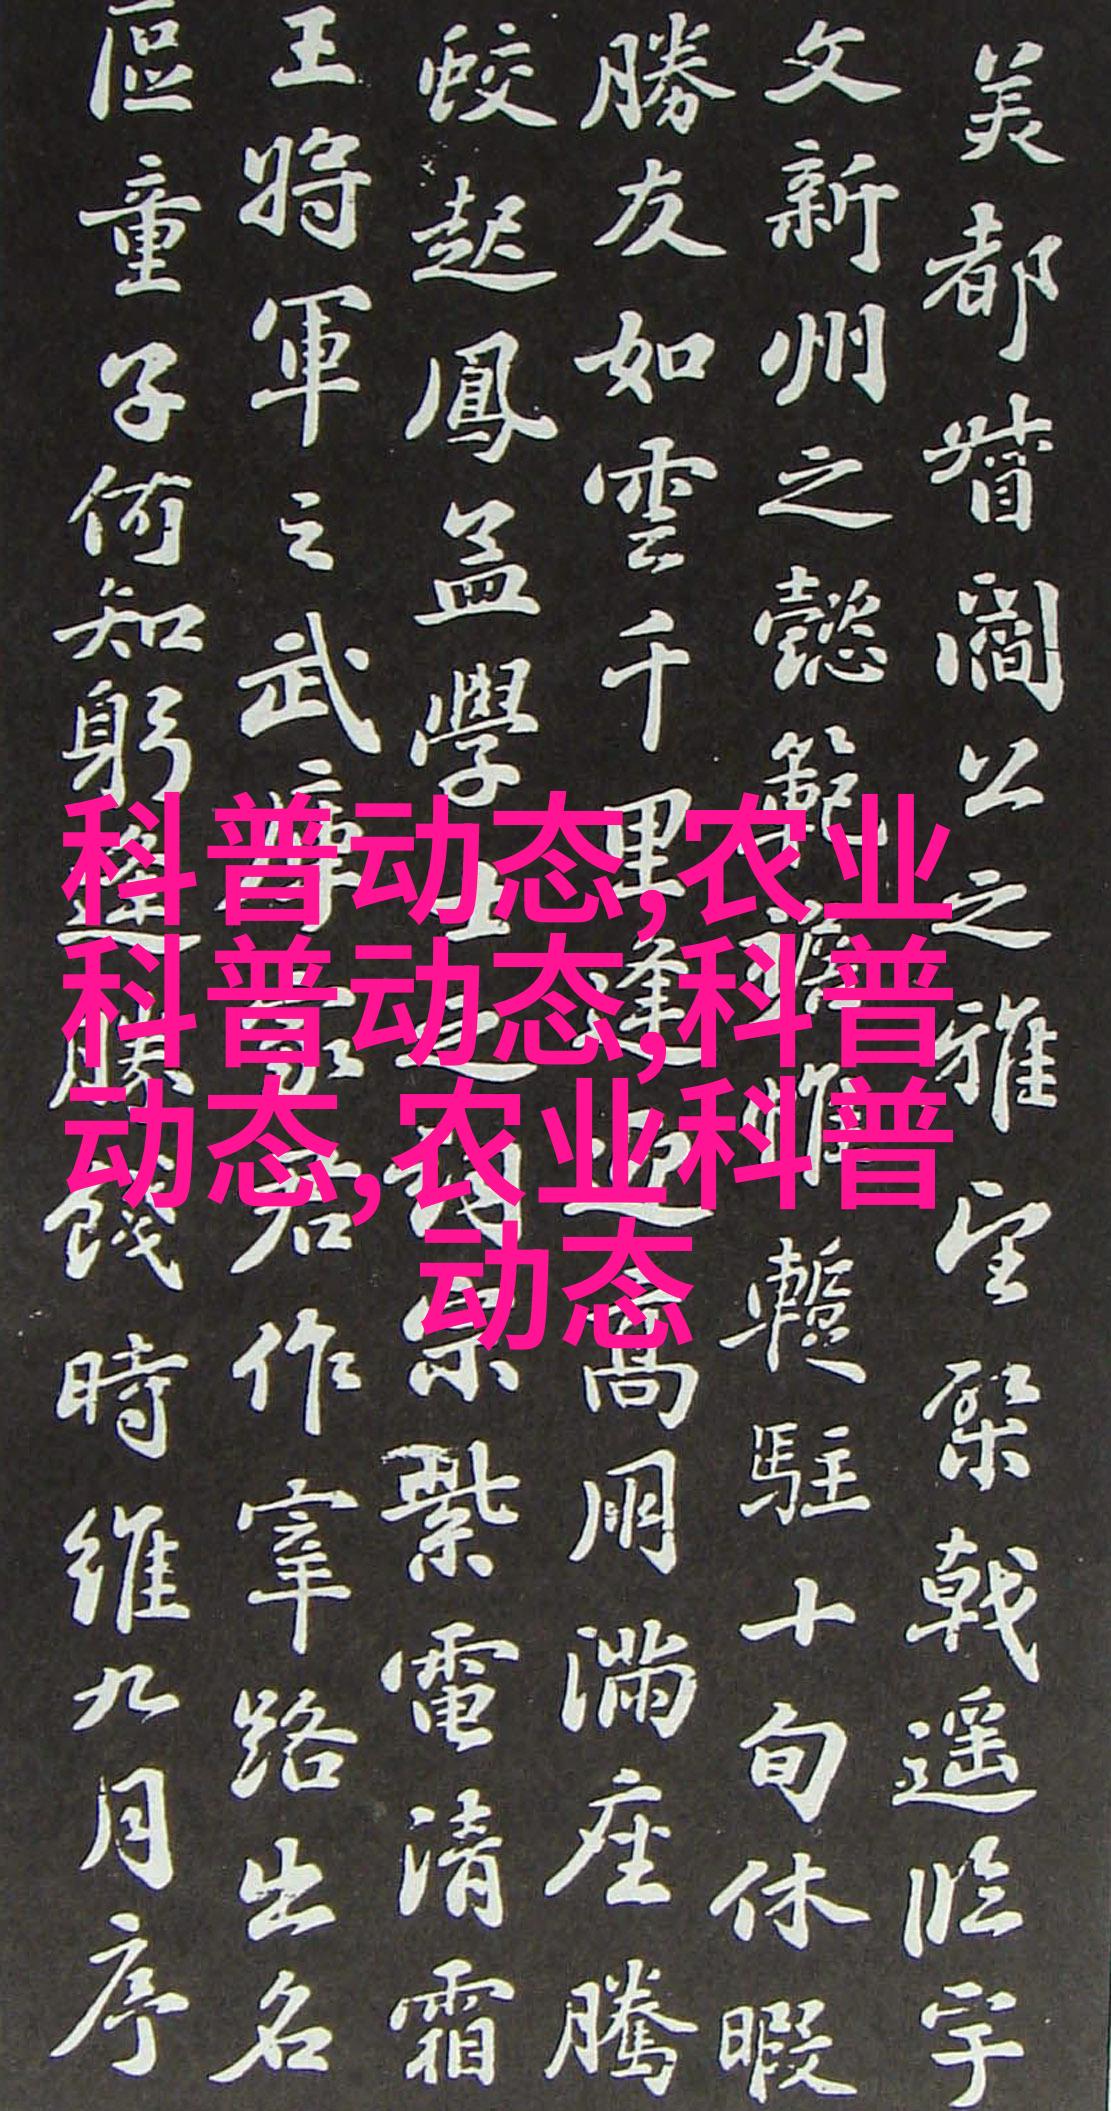 美都督閻公之雅望棨戟遥临宇
文新州之懿範襜帷暫駐十旬休暇
勝友如雲千里逢迎高朋满座騰
蛟起鳳孟學士之詞宗紫電清霜
王將軍之武庫家君作宰路出名
區童子何知躬逢勝餞時維九月序
科普动态,农业
科普动态,科普
动态,农业科普
动态